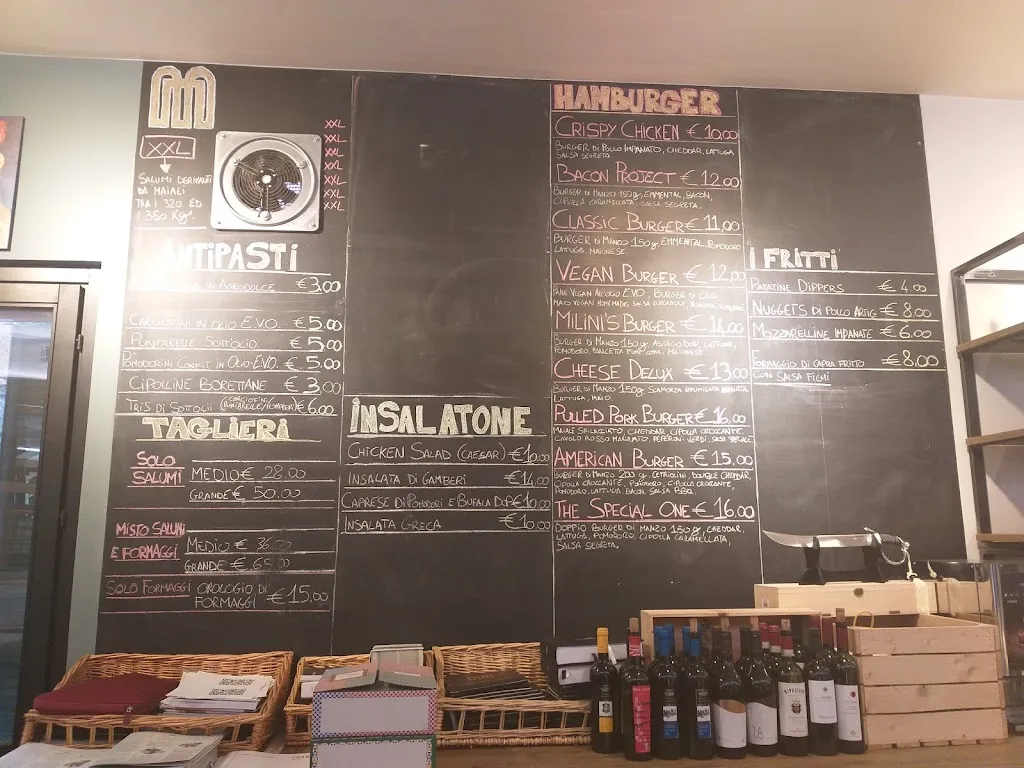 M
XXL
SALUMI DERIVANTI
DA MAIALI
TRA I 320 ED
I 360 Kg
XXL
XXL
XXL
XXL
XXL
XXL
XXL
ANTIPASTI
IN AGRODOLCE €3,00
CARCIOFINI IN OLIO EVO €5,00
PUNTARELLE SOTTOLIO €5,00
POMODORINI CONFIT IN OLIO EVO €5,00
CIPOLLINE BORETTANE €3,00
TRIS DI SOTTOLII (CARCIOFINI/PUNTARELLE/POMODORI) €6,00
TAGLIERI
SOLO
SALUMI
MEDIO € 28,00
GRANDE € 50,00
MISTO SALUMI
E FORMAGGI
MEDIO € 36,00
GRANDE € 65,00
SOLO FORMAGGI OROLOGIO DI
FORMAGGI €15,00
INSALATONE
CHICKEN SALAD (CAESAR) €10,00
INSALATA DI GAMBERI €14,00
CAPRESE DI POMODORI E BUFALA DOP €10,00
INSALATA GRECA €10,00
HAMBURGER
CRISPY CHICKEN €10,00
BURGER DI POLLO IMPANATO, CHEDDAR, LATTUGA
SALSA SEGRETA
BACON PROJECT €12,00
BURGER DI MANZO 150gr, EMMENTAL, BACON,
CIPOLLA CARAMELLATA, SALSA SEGRETA.
CLASSIC BURGER €11,00
BURGER DI MANZO 150 gr, EMMENTAL, POMODORO
LATTUGA, MAIONESE.
VEGAN BURGER €12,00
PANE VEGAN ALL'OLIO EVO, BURGER DI CECI
MAIO VEGAN HOMEMADE, SALSA
MILINI'S BURGER €14,00
BURGER DI MANZO 150gr, ASIAGO DOP, LATTUGA,
POMODORO, PANCETTA, MAIONESE.
CHEESE DELUX €13,00
BURGER DI MANZO 150gr, SCAMORZA AFFUMICATA
LATTUGA, MAIO.
PULLED PORK BURGER €16,00
MAIALE SFILACCIATO, CHEDDAR, CIPOLLA CROCCANTE,
CAVOLO ROSSO MARINATO, PEPERONI VERDI, SALSA SPECIALE
AMERICAN BURGER €15,00
BURGER DI MANZO 200 gr, CETRIOLINI, DOUBLE CHEDDAR,
CIPOLLA CROCCANTE, POMODORO,
POMODORO, LATTUGA, BACON, SALSA BBQ.
THE SPECIAL ONE €16,00
DOPPIO BURGER DI MANZO 150gr, CHEDDAR,
LATTUGA, POMODORO, CIPOLLA CARAMELLATA,
SALSA SEGRETA.
I FRITTI
PATATINE DIPPERS €4,00
NUGGETS DI POLLO ARTIG €8,00
MOZZARELLINE IMPANATE €6,00
FORMAGGIO DI CAPRA FRITTO €8,00
CON SALSA FICHI